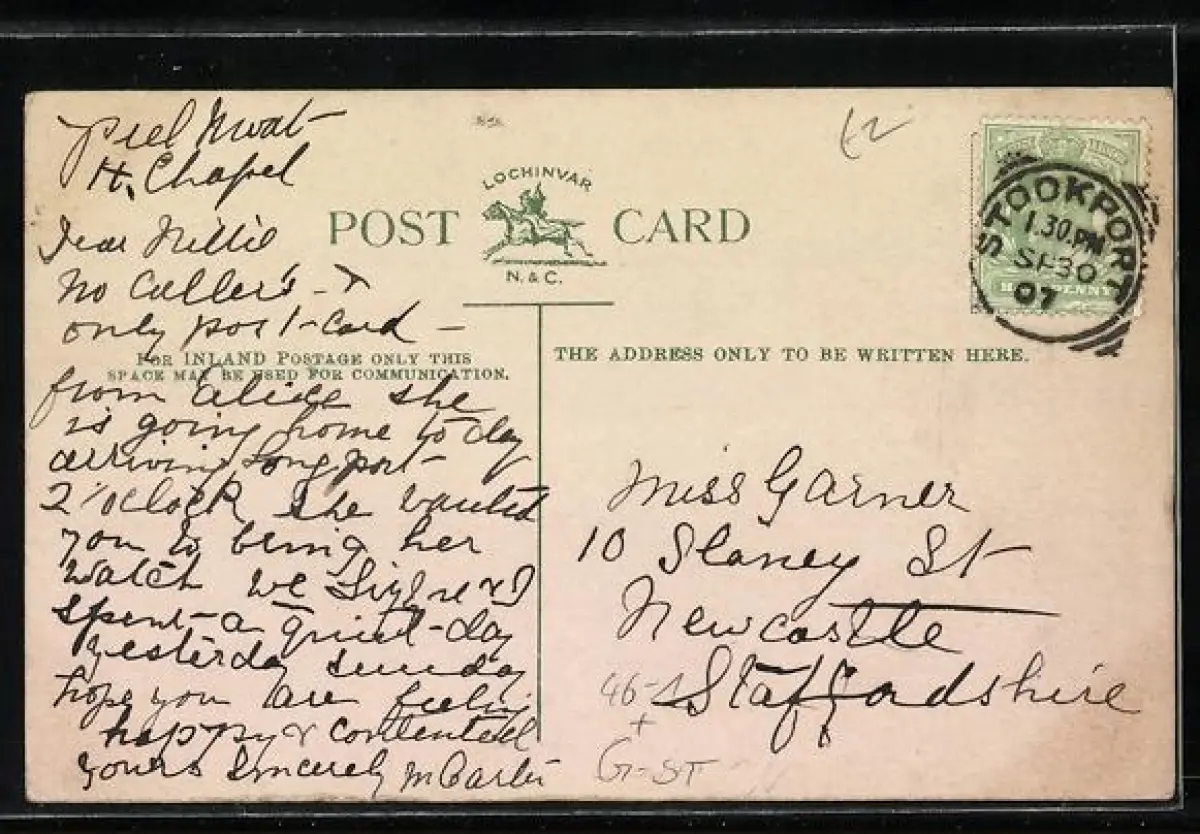 Peel Mwat
H. Chapel
Dear Nillie
No Callers - &
only post-Card -
from Alice she
is going home to day
arriving Longport-
2 o'clock she wanted
you to bring her
watch we & I
spent-a quiet-day
yesterday sunday
hope you are feeling
happy & contented
yours Sincerely M Carter
POST CARD
LOCHINVAR
N. & C.
FOR INLAND POSTAGE ONLY THIS
SPACE MAY BE USED FOR COMMUNICATION.
THE ADDRESS ONLY TO BE WRITTEN HERE.
STOCKPORT
1.30.PM
SP 30
07
HALFPENNY
Miss Garner
10 Slaney St
Newcastle
Staffordshire
46-1
+
G-ST